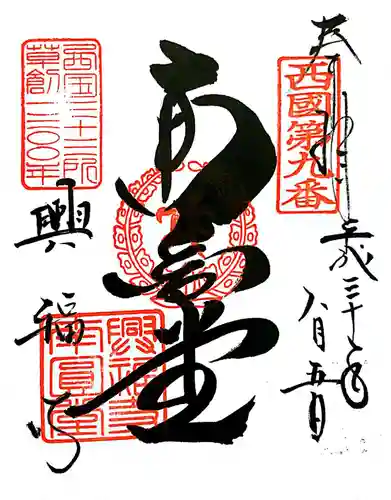 奉拝
平成三十年
八月五日
西國第九番
南圓堂
西国三十三所
草創一三〇〇年
興福寺
興福寺
南圓堂